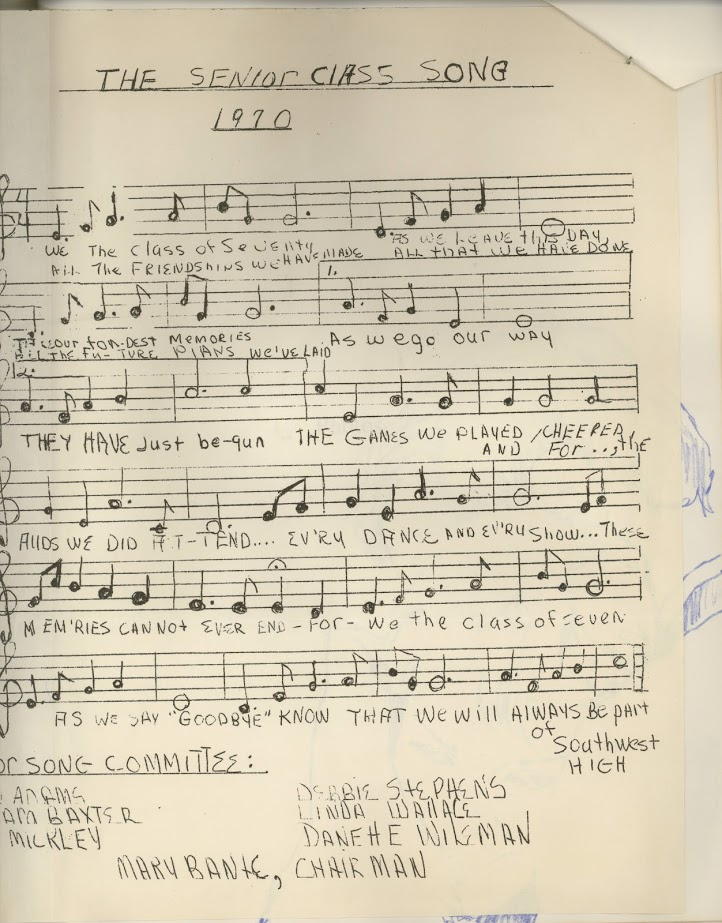 THE SENIOr ClASS SONG
1970
WE The Class of Seventy AS WE LEAVE thIS DAY
All The FRIENDSHIPS WE HAVE MADE ALL thAT WE HAVE DONE
1.
our fon-DEST MEMORIES As we go our WAY
All THE FU-TURE PLANS WE'VE LAID
THEY HAVE Just be-gun THE GAMES We PLAYED / CHEERED
AND FOR..., the
WE DID AT-TEND.... EV'RY DANCE AND EV'RY Show... These
MEM'RIES CANNOT EVER END - FOr - We the class of seven
AS WE SAY "GOODBYE" KNOW THAT We will AlWAYS Be part
of Southwest
HIGH
SONG COMMITTEE:
ADAMS DEBBIE STEPHENS
BAXTER LINDA WALLACE
MICKLEY WILEMAN
MARY , CHAIRMAN